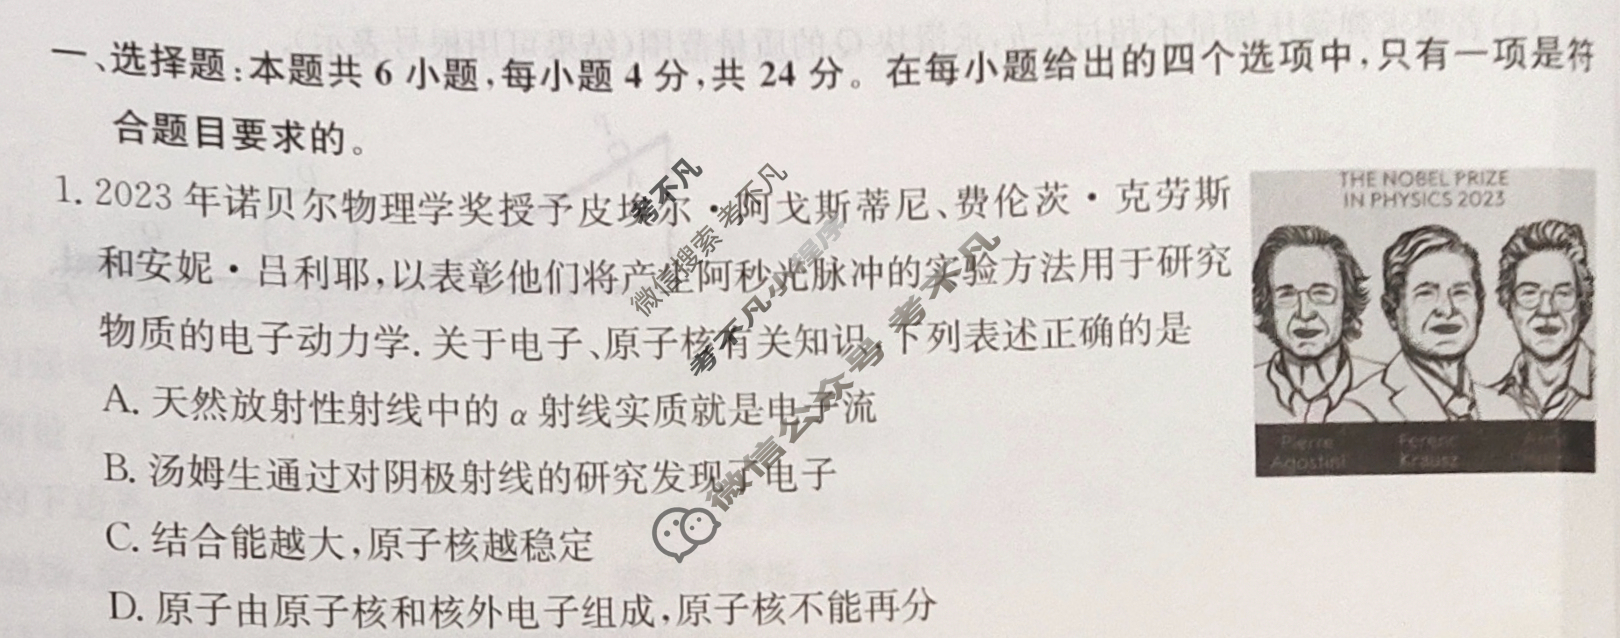 一、选择题:本题共 6 小题,每小题 4 分,共 24 分。在每小题给出的四个选项中,只有一项是符
合题目要求的。
1. 2023 年诺贝尔物理学奖授予皮埃尔·阿戈斯蒂尼、费伦茨·克劳斯
和安妮·吕利耶,以表彰他们将产生阿秒光脉冲的实验方法用于研究
物质的电子动力学. 关于电子、原子核有关知识,下列表述正确的是
A. 天然放射性射线中的 α 射线实质就是电子流
B. 汤姆生通过对阴极射线的研究发现了电子
C. 结合能越大,原子核越稳定
D. 原子由原子核和核外电子组成,原子核不能再分
THE NOBEL PRIZE
IN PHYSICS 2023
Pierre
Agostini
Ferenc
Krausz
考不凡
微信搜索 考不凡
考不凡小程序
微信公众号 考不凡